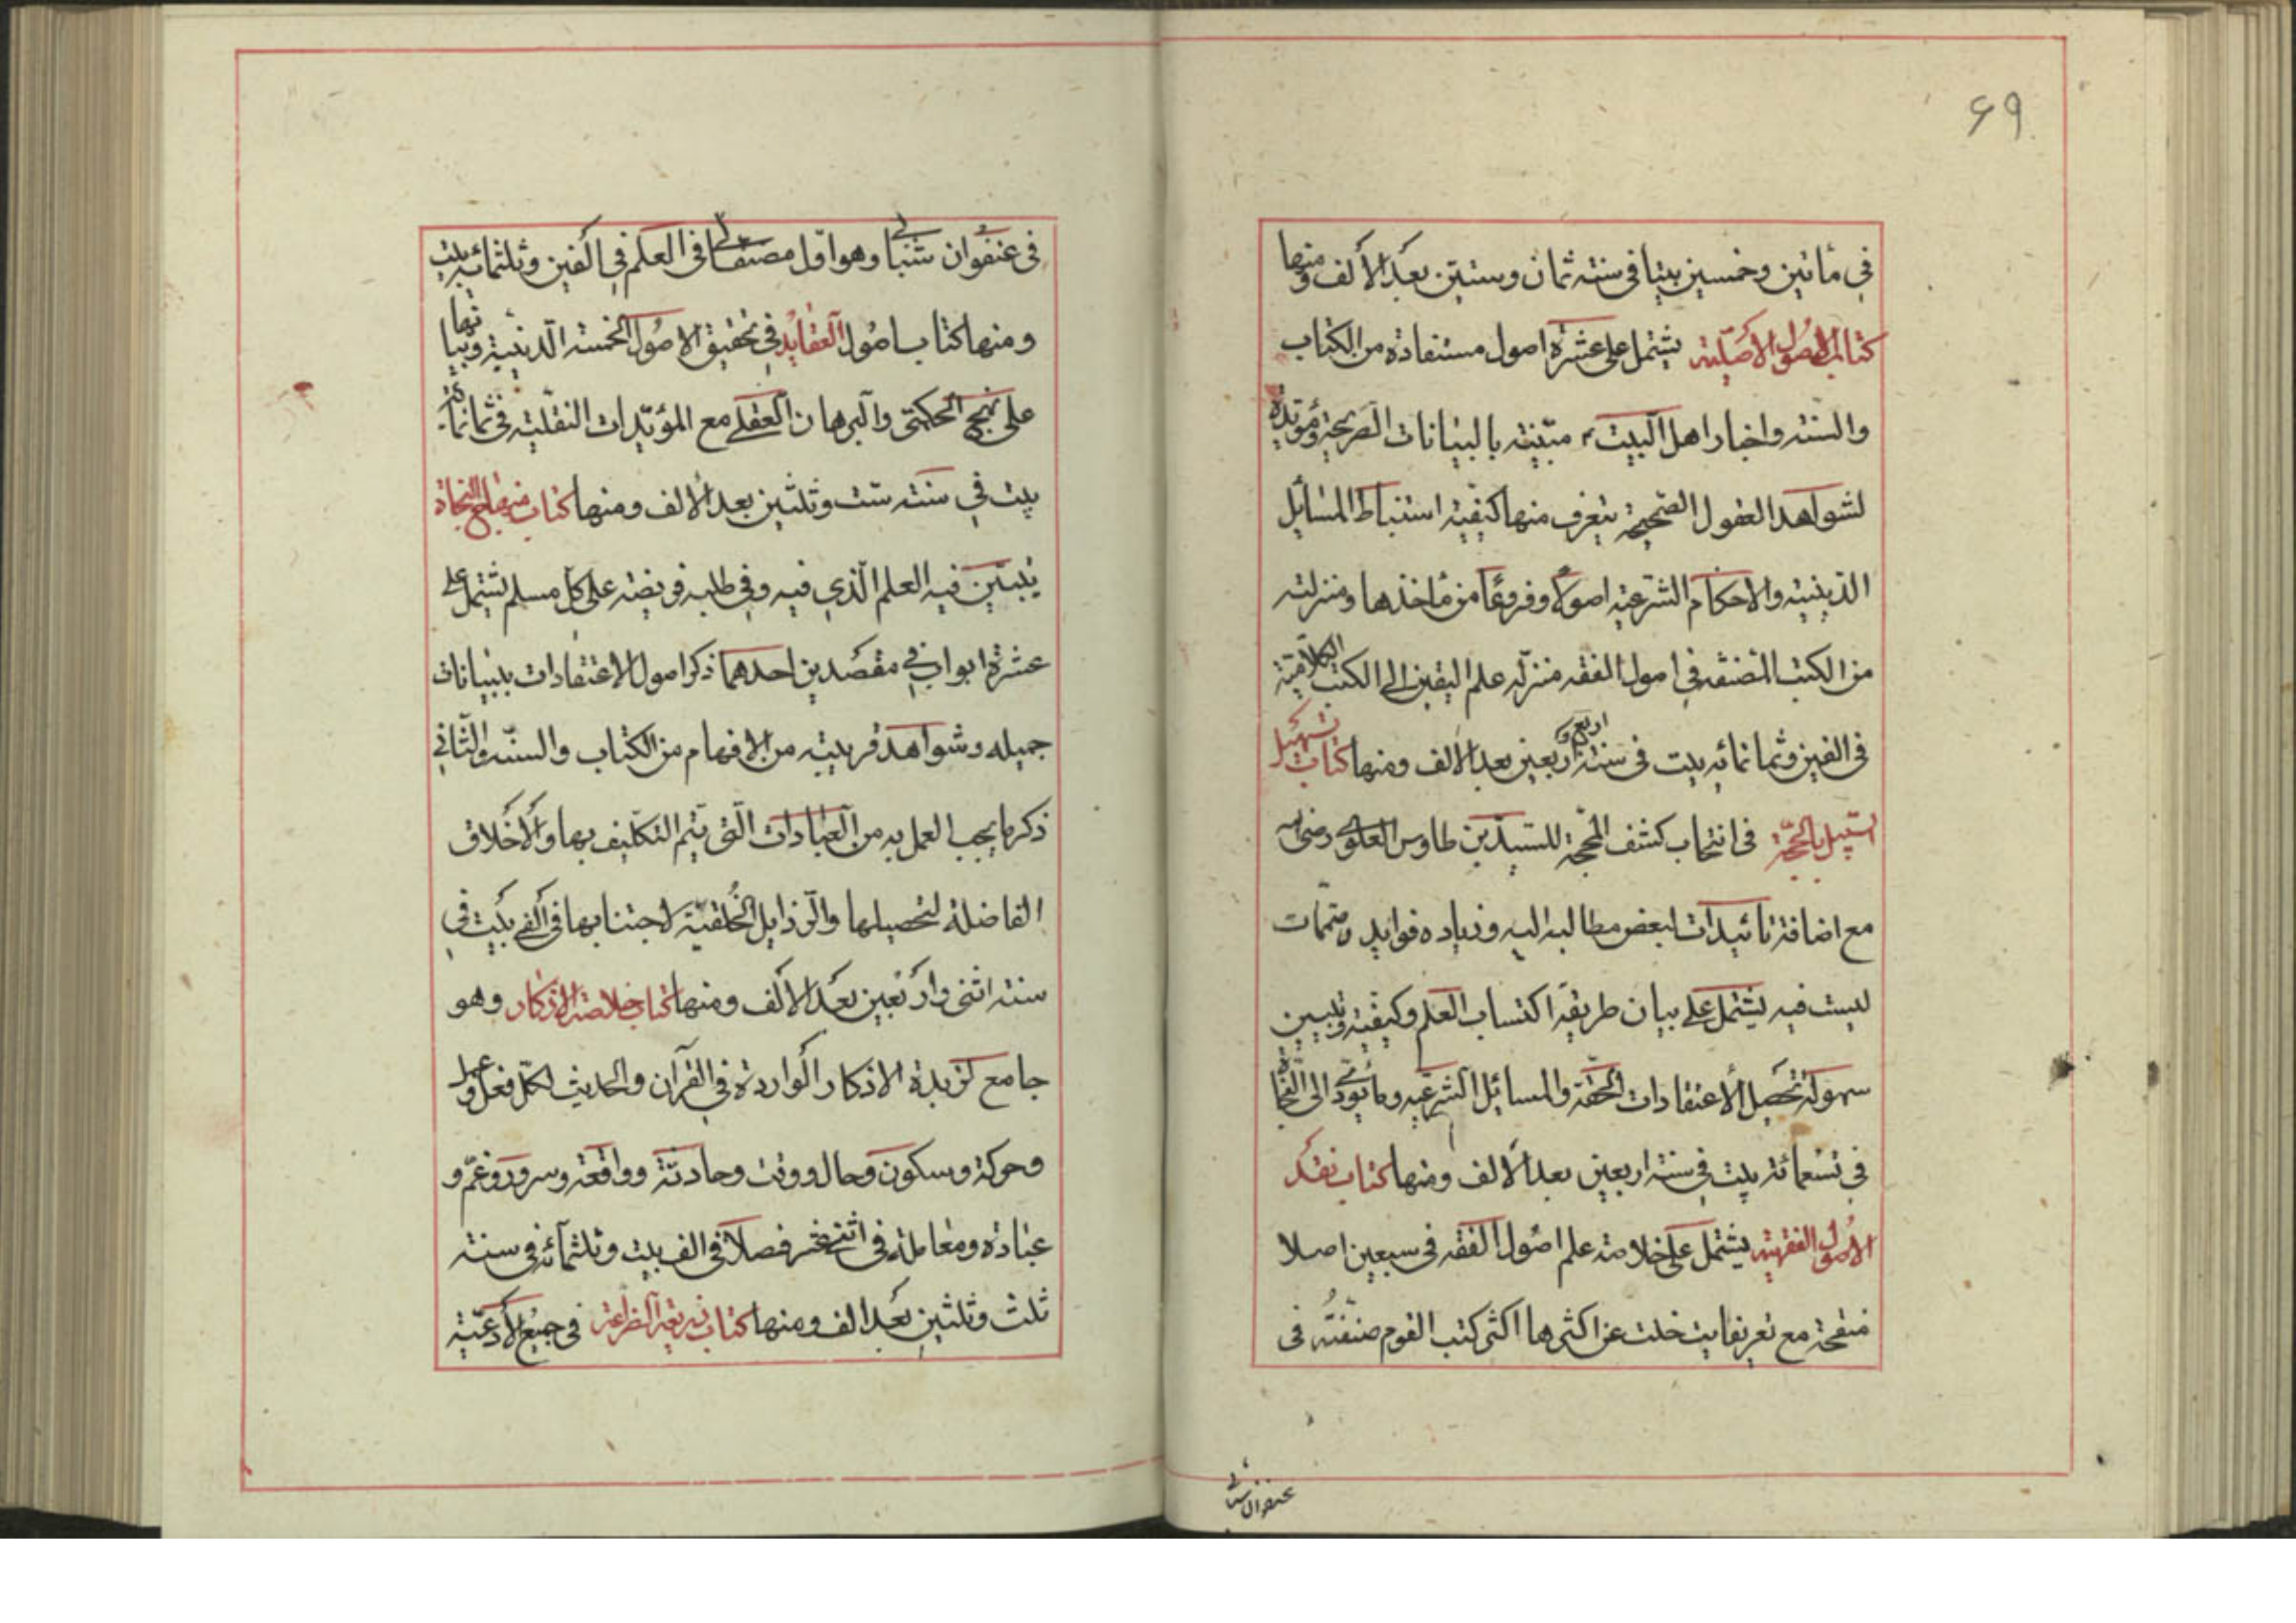 ۶۹
في مأتين وخمسين بيتا في سنة ثمان وستين بعد الألف ومنها
كتاب الاصول الاصلية يشتمل على عشرة اصول مستفادة من الكتاب
والسنة واخبار اهل البيت ع مبينة بالبيانات الصريحة ومؤيدة
لشواهد العقول الصحيحة يتعرف منها كيفية استنباط المسائل
الدينية والاحكام الشرعية اصولا وفروعا من مأخذها ومنزلته
من الكتب المصنفة في اصول الفقه منزلة علم اليقين الى الكتب الكلامية
في الفين وثمانمائه بيت في سنة اربع و اربعين بعد الالف ومنها كتاب تسهيل
السبيل بالحجة في انتخاب كشف المحجة للسيد بن طاوس العلوي رضى الله
مع اضافة تائيدات لبعض مطالبه اليه وزياده فوايد ومتممات
ليست فيه يشتمل على بيان طريقة اكتساب العلم وكيفيته وتبيين
سهولة تحصيل الأعتقادات الحقة والمسائل الشرعيه وما يؤدي الى النجاة
في تسعمائة بيت في سنة اربعين بعد الالف ومنها كتاب نقد
الأصول الفقهية يشتمل على خلاصة علم اصول الفقه في سبعين اصلا
منقحة مع تعريفات خلت عن اكثرها اكثر كتب القوم صنفته في
عنفوان شبابي
في عنفوان شبابي وهو اول مصنفاتي في العلم في الفين وثلثمائه بيت
ومنها كتاب اصول العقايد في تحقيق الاصول الخمسة الدينية وبيانها
على نهج الحكمي والبرهان العقلي مع المؤيدات النقلية في ثمانمائة
بيت في سنة ست وثلثين بعد الألف ومنها كتاب منهاج النجاة
يتبين فيه العلم الذي فيه وفي طلبه فريضة على كل مسلم يشتمل على
عشرة ابواب في مقصدين احدهما ذكر اصول الاعتقادات ببيانات
جميله وشواهد قريبة من الافهام من الكتاب والسنة والثاني
ذكر ما يجب العمل به من العبادات التي يتم التكليف بها والأخلاق
الفاضلة لتحصيلها والرذايل الخلقية لاجتنابها في ألفي بيت في
سنة اثنى واربعين بعد الالف ومنها كتاب خلاصة الاذكار وهو
جامع لزبدة الاذكار الواردة في القرآن والحديث لكل فعل وعمل
وحركة وسكون وحال ووقت وحادثة وواقعة وسرور وغم و
عبادة ومعاملة في اثنى عشر فصلا في الف بيت وثلثمائه في سنة
ثلث وثلثين بعد الف ومنها كتاب ذريعة الضراعة في جميع الأدعية